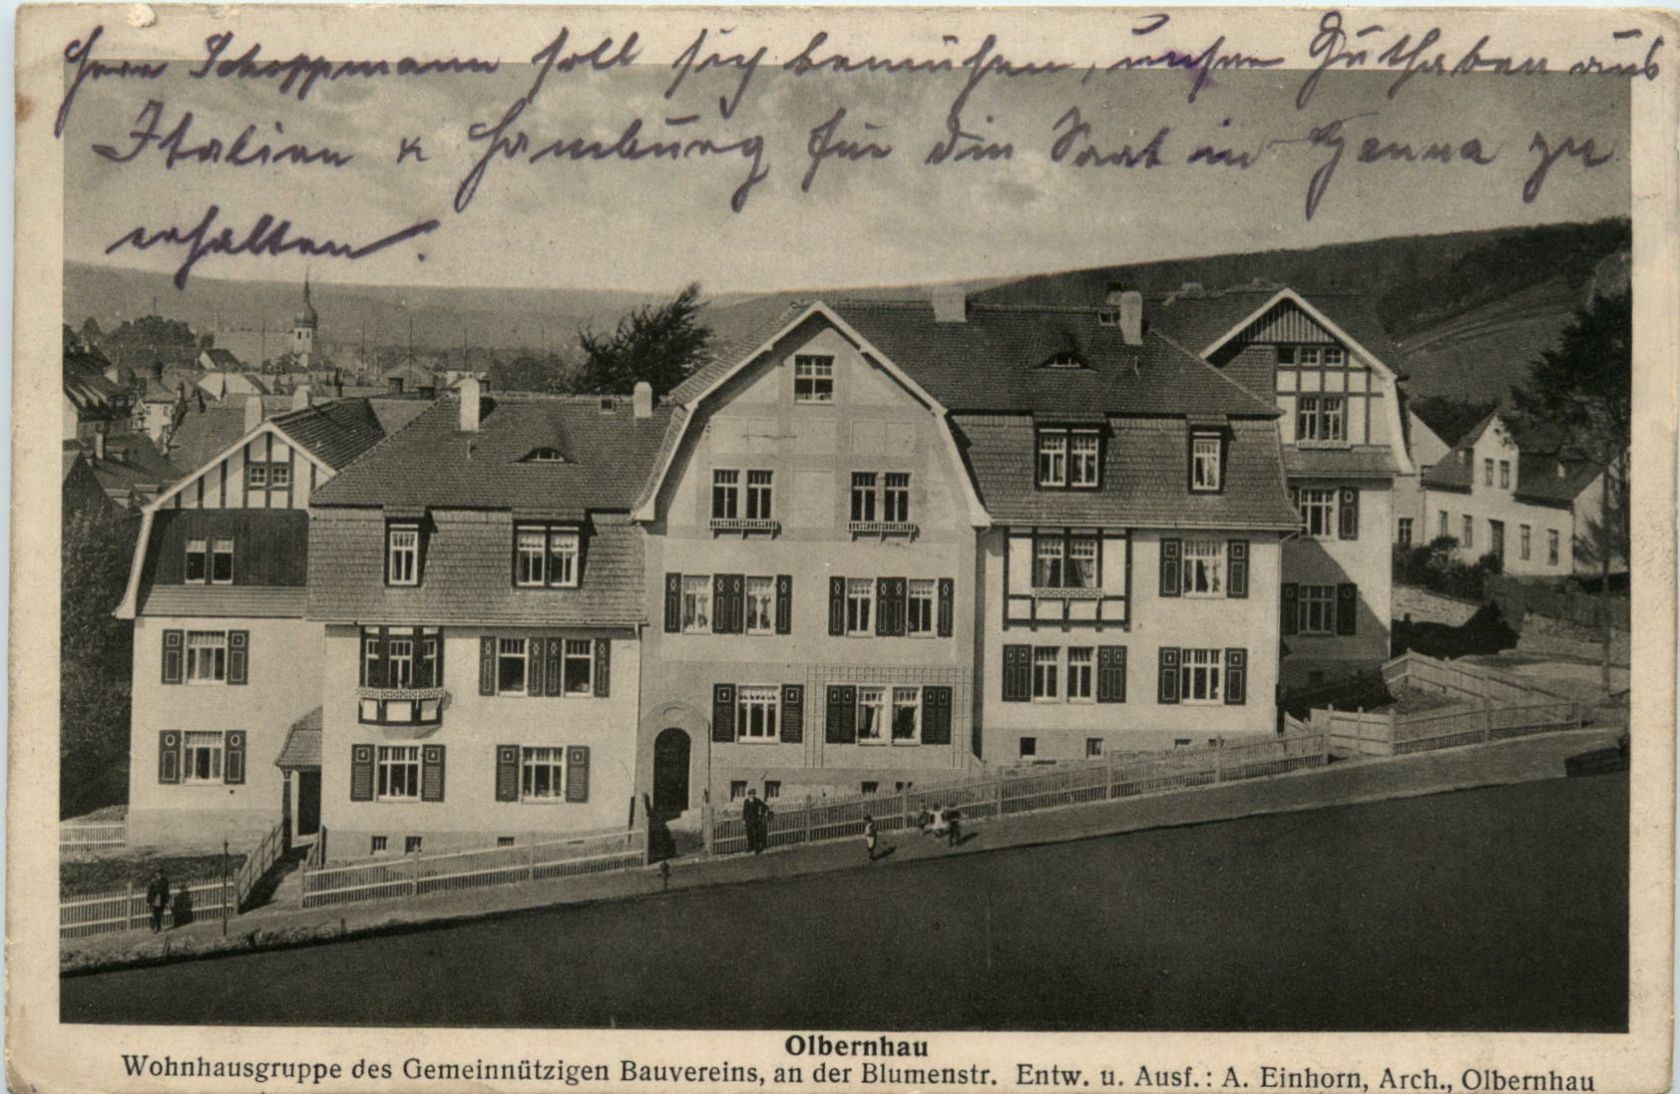 Herrn Schoppmann soll sich bemühen, unser Guthaben aus
Italien & Hamburg für die Saat in Genua zu
erhalten.
Olbernhau
Wohnhausgruppe des Gemeinnützigen Bauvereins, an der Blumenstr. Entw. u. Ausf.: A. Einhorn, Arch., Olbernhau